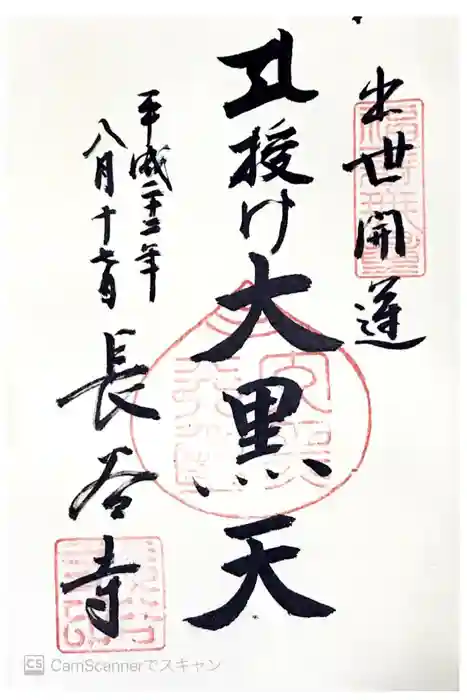 出世開運
授け大黒天
平成二十二年
八月十七日
長谷寺
CS CamScannerでスキャン